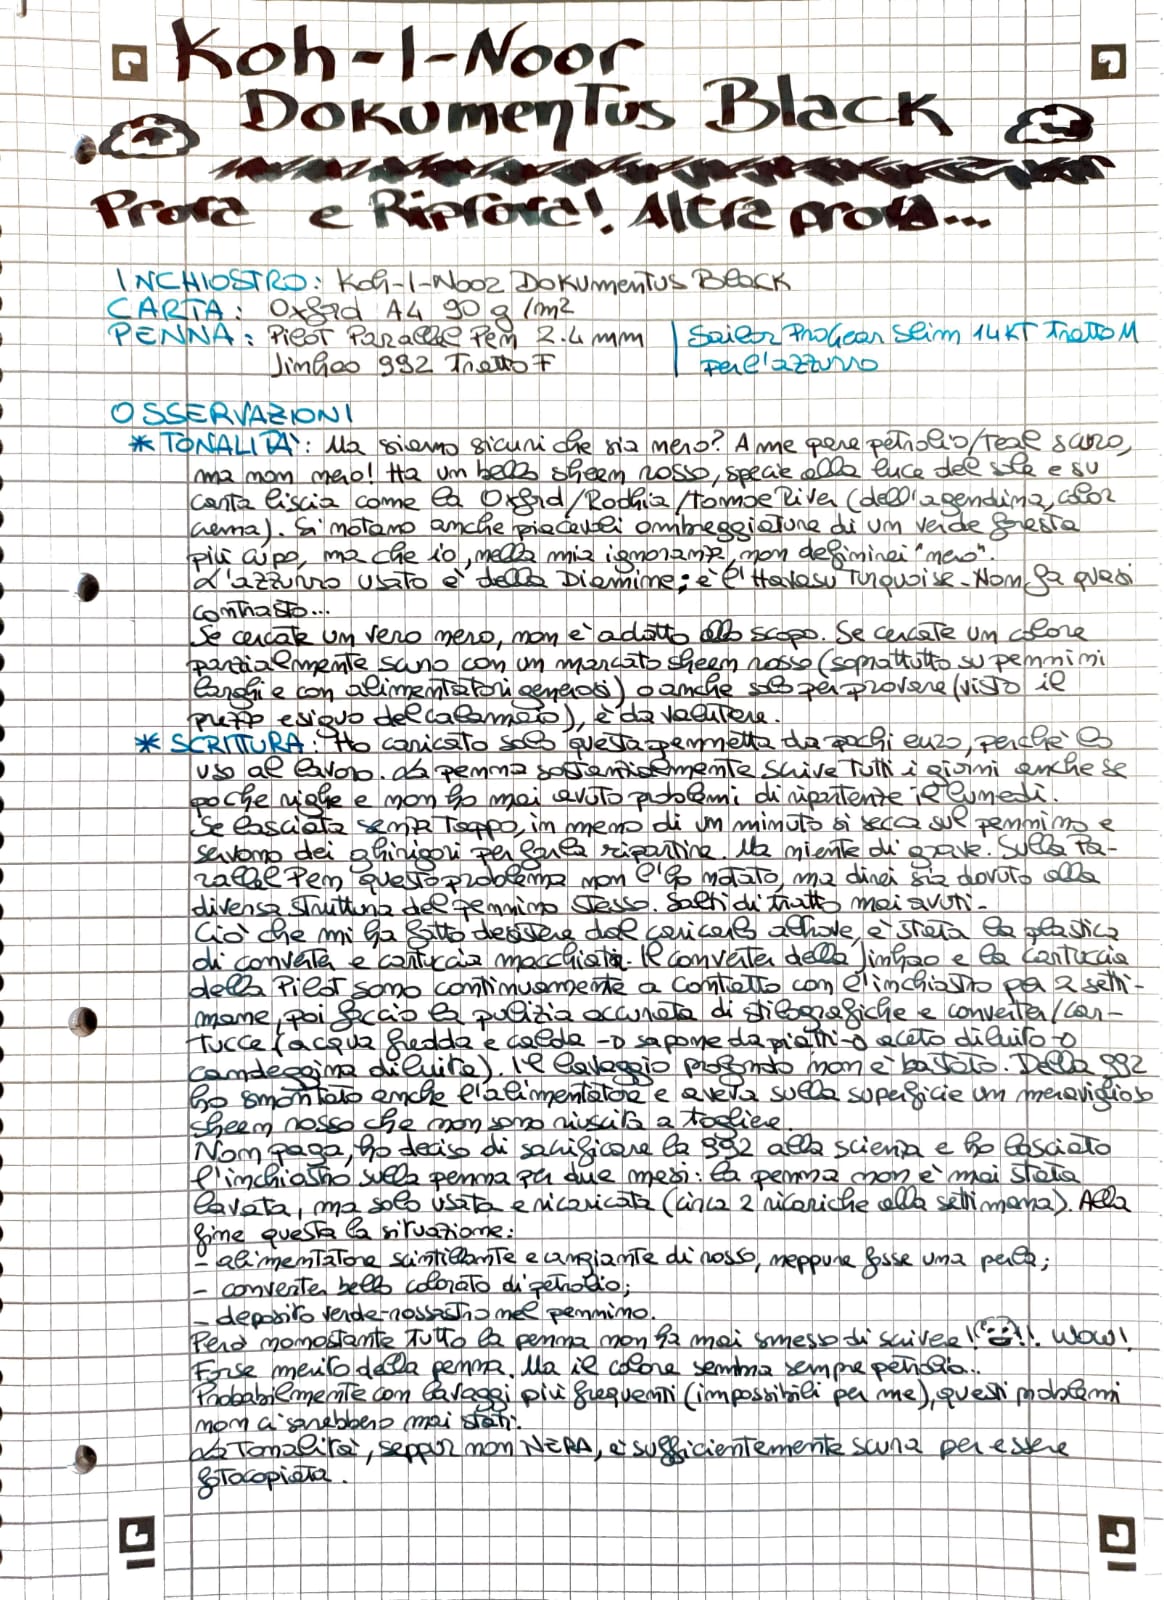 Koh-I-Noor
Dokumentus Black
Prova e Riprova! Altra prova...
INCHIOSTRO: Koh-I-Noor Dokumentus Black
CARTA: Oxford A4 90 g/m2
PENNA: Pilot Parallel Pen 2.4 mm | Sailor ProGear Slim 14KT Tratto M
Jinhao 992 Tratto F | per l'azzurro
OSSERVAZIONI
* TONALITA': Ma siamo sicuri che sia nero? A me pare petrolio/teal scuro,
ma non nero! Ha un bello sheen rosso, specie alla luce del sole e su
carta liscia come la Oxford/Rodhia/Tomoe River (dell'agendina, color
crema). Si notano anche piacevoli ombreggiature di un verde foresta
più cupo, ma che io, nella mia ignoranza, non definirei "nero".
L'azzurro usato è della Diamine; è l'Havasu Turquoise. Non fa quasi
contrasto...
Se cercate un vero nero, non è adatto allo scopo. Se cercate un colore
parzialmente scuro con un marcato sheen rosso (soprattutto su pennini
larghi e con alimentatori generosi) o anche solo per provare (visto il
prezzo esiguo del calamaio), è da valutare.
* SCRITTURA: Ho caricato solo questa pennetta da pochi euro, perchè la
uso al lavoro. La penna sostanzialmente scrive tutti i giorni anche se
poche righe e non ho mai avuto problemi di ripartenze il lunedì.
Se lasciata senza tappo, in meno di un minuto si secca sul pennino e
servono dei ghirigori per farla ripartire. Ma niente di grave. Sulla Pa-
rallel Pen questo problema non l'ho notato, ma direi sia dovuto alla
diversa struttura del pennino stesso. Salti di tratto mai avuti.
Ciò che mi ha fatto desistere dal caricarlo altrove, è stata la plastica
di converter e cartuccia macchiata. Il converter della Jinhao e la cartuccia
della Pilot sono continuamente a contatto con l'inchiostro per 2 setti-
mane, poi faccio la pulizia accurata di stilografiche e converter/car-
tucce (acqua fredda e calda → sapone da piatti → aceto diluito →
candeggina diluita). Il lavaggio profondo non è bastato. Della 992
ho smontato anche l'alimentatore e aveva sulla superficie un meraviglioso
sheen rosso che non sono riuscita a togliere.
Non paga, ho deciso di sacrificare la 992 alla scienza e ho lasciato
l'inchiostro sulla penna per due mesi: la penna non è mai stata
lavata, ma solo usata e ricaricata (circa 2 ricariche alla settimana). Alla
fine questa la situazione:
- alimentatore scintillante e cangiante di rosso, neppure fosse una perla;
- converter bello colorato di petrolio;
- deposito verde-rossastro nel pennino.
Però nonostante tutto la penna non ha mai smesso di scivere!!!. WOW!
Forse merito della penna. Ma il colore sembra sempre petrolio...
Probabilmente con lavaggi più frequenti (impossibili per me), questi problemi
non ci sarebbero mai stati.
La Tonalità, seppur non NERA, è sufficientemente scura per essere
fotocopiata.